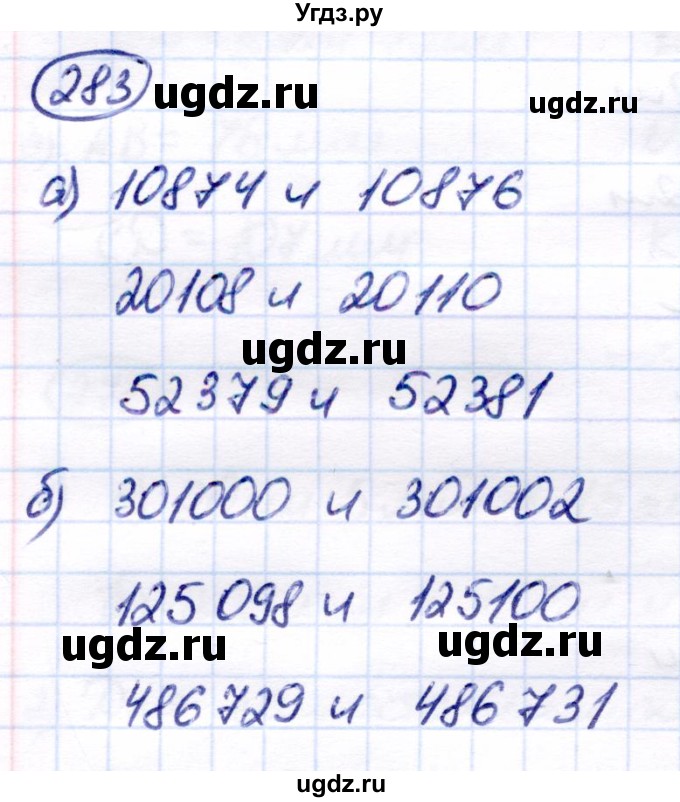 Угдз.ру
283 ugdz.ru ugdz.ru
а) 10874 и 10876
20108 и 20110
ugdz.ru
52379 и 52381
б) 301000 и 301002
125 098 и 125100
ugdz.ru ugdz.ru
486 729 и 486 731
ugdz.ru